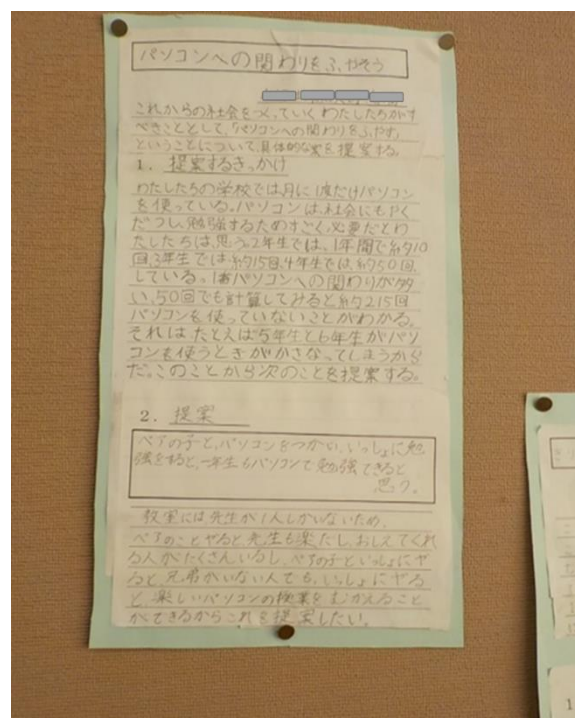 パソコンへの関わりをふやそう
これからの社会をつくっていくわたしたちがす
べきこととして、「パソコンへの関わりをふやす」
ということについて具体的な案を提案する。
1. 提案するきっかけ
わたしたちの学校では月に1度だけパソコン
を使っている。パソコンは、社会にもやく
だつし、勉強するためすごく必要だとわ
たしたちは、思う。2年生では、1年間で約10
回、3年生では約15回、4年生では、約50回
している。1番パソコンへの関わりが多
い、50回でも計算してみると約215回
パソコンを使っていないことがわかる。
それは、たとえば5年生と6年生がパソ
コンを使うときがかさなってしまうから
だ。このことから次のことを提案する。
2. 提案
ペアの子と、パソコンをつかい、いっしょに勉
強をすると、一年生もパソコンで勉強できると
思う。
教室には先生が1人しかいないため、
ペアのことやると先生も楽だし、おしえてくれ
る人がたくさんいるし、ペアの子といっしょにヤ
ると、兄弟がいない人でも、いっしょにヤる
と、楽しいパソコンの授業をむかえること
ができるからこれを提案したい。
1